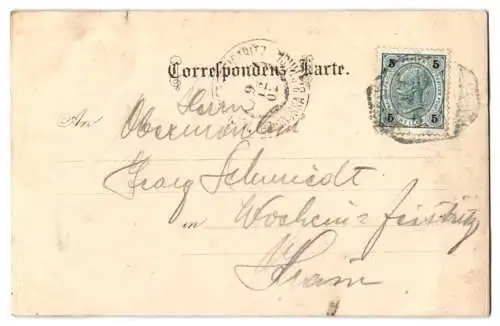 Correspondenz-Karte.
Herrn
An Obermonteur
Georg Schmiedt
in Wochein-Feistritz
Krain
5 5
5 5